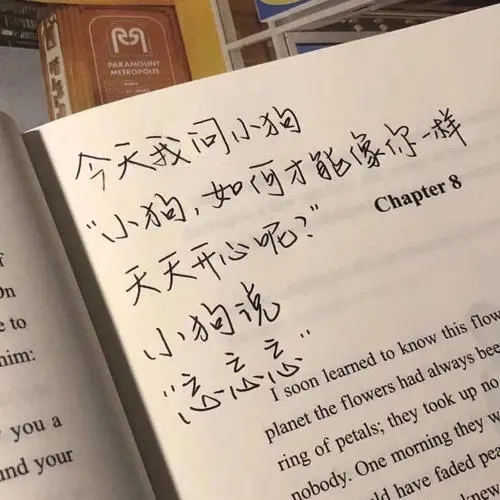 PARAMOUNT
METROPOLIS
今天我问小狗
"小狗,如何才能像你一样
天天开心呢?"
小狗说
"忘忘忘"
Chapter 8
I soon learned to know this flow
planet the flowers had always been
ring of petals; they took up no
nobody. One morning they w
ld have faded pea
knew
f
On
e to
him:
y you a
und your